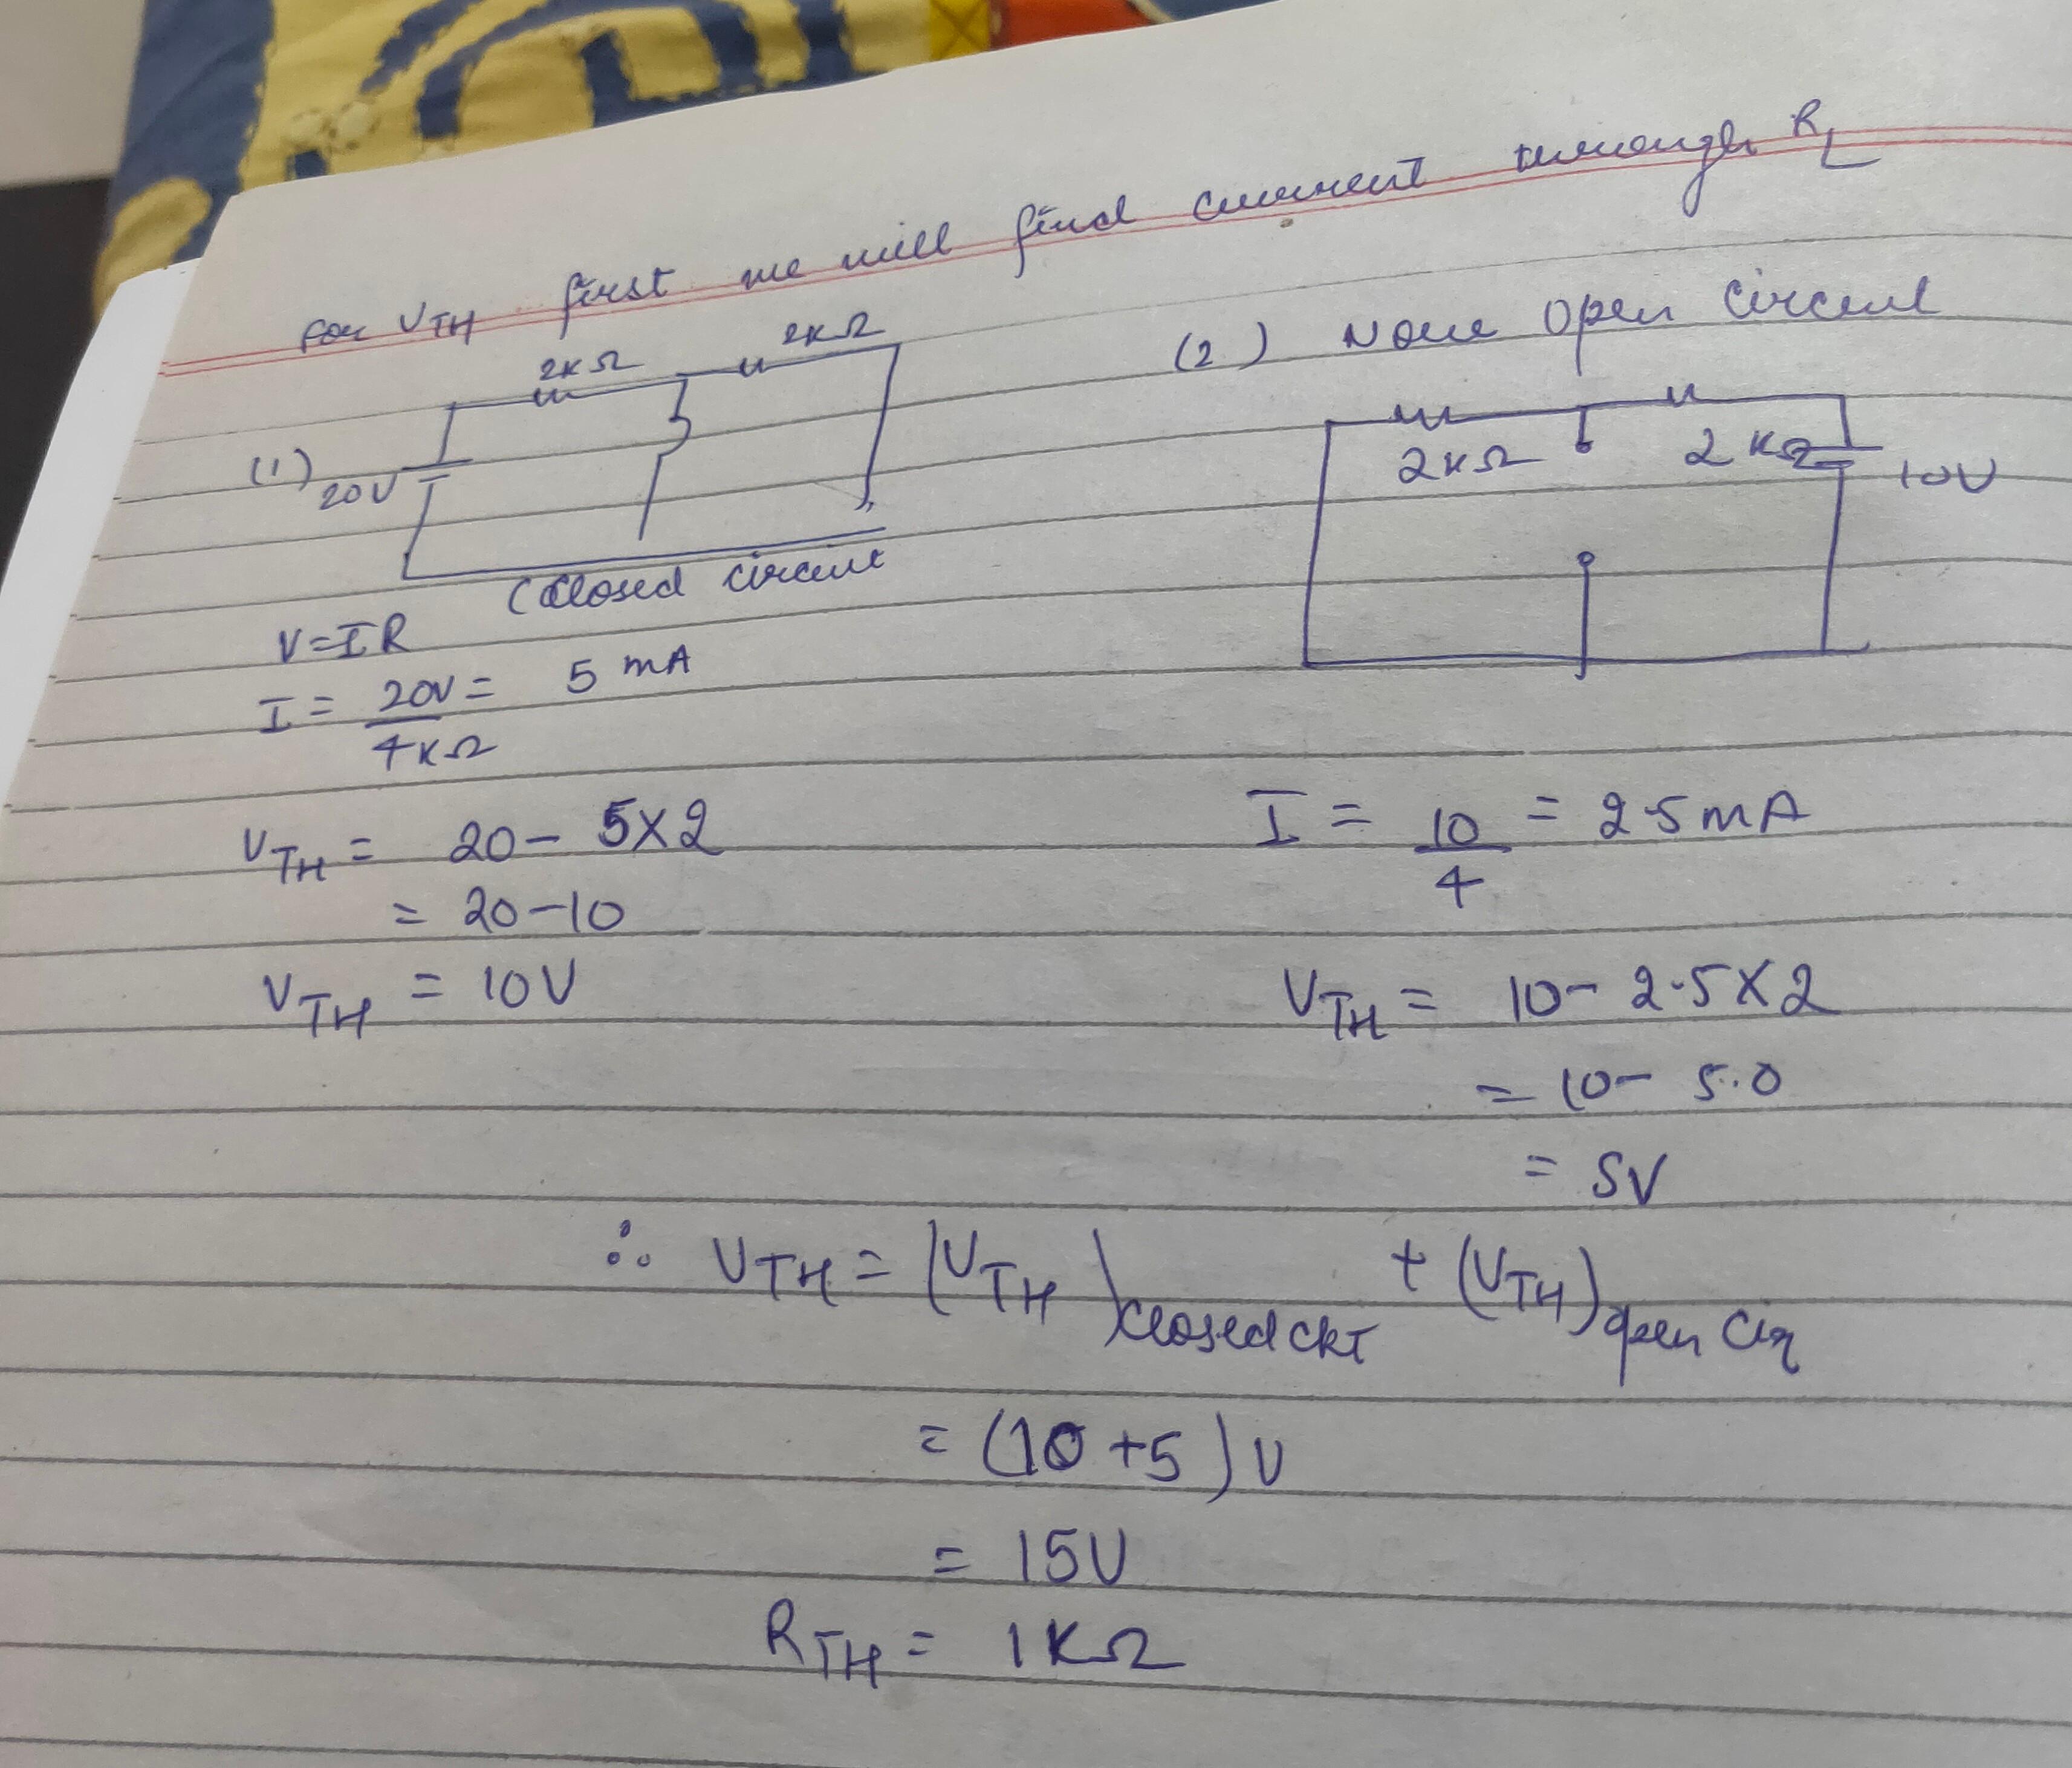 For VTH first we will find current through RL
(1)
20V
2KΩ
2KΩ
(Closed circuit
V=IR
I = 20V = 5 mA
4KΩ
VTH = 20 - 5X2
= 20-10
VTH = 10V
(2) Now Open Circuit
2KΩ
2KΩ
10V
I = 10 = 2.5mA
4
VTH = 10 - 2.5X2
= 10 - 5.0
= 5V
∴ VTH = (VTH)closed ckT + (VTH)open Cir
= (10+5)V
= 15V
RTH = 1KΩ